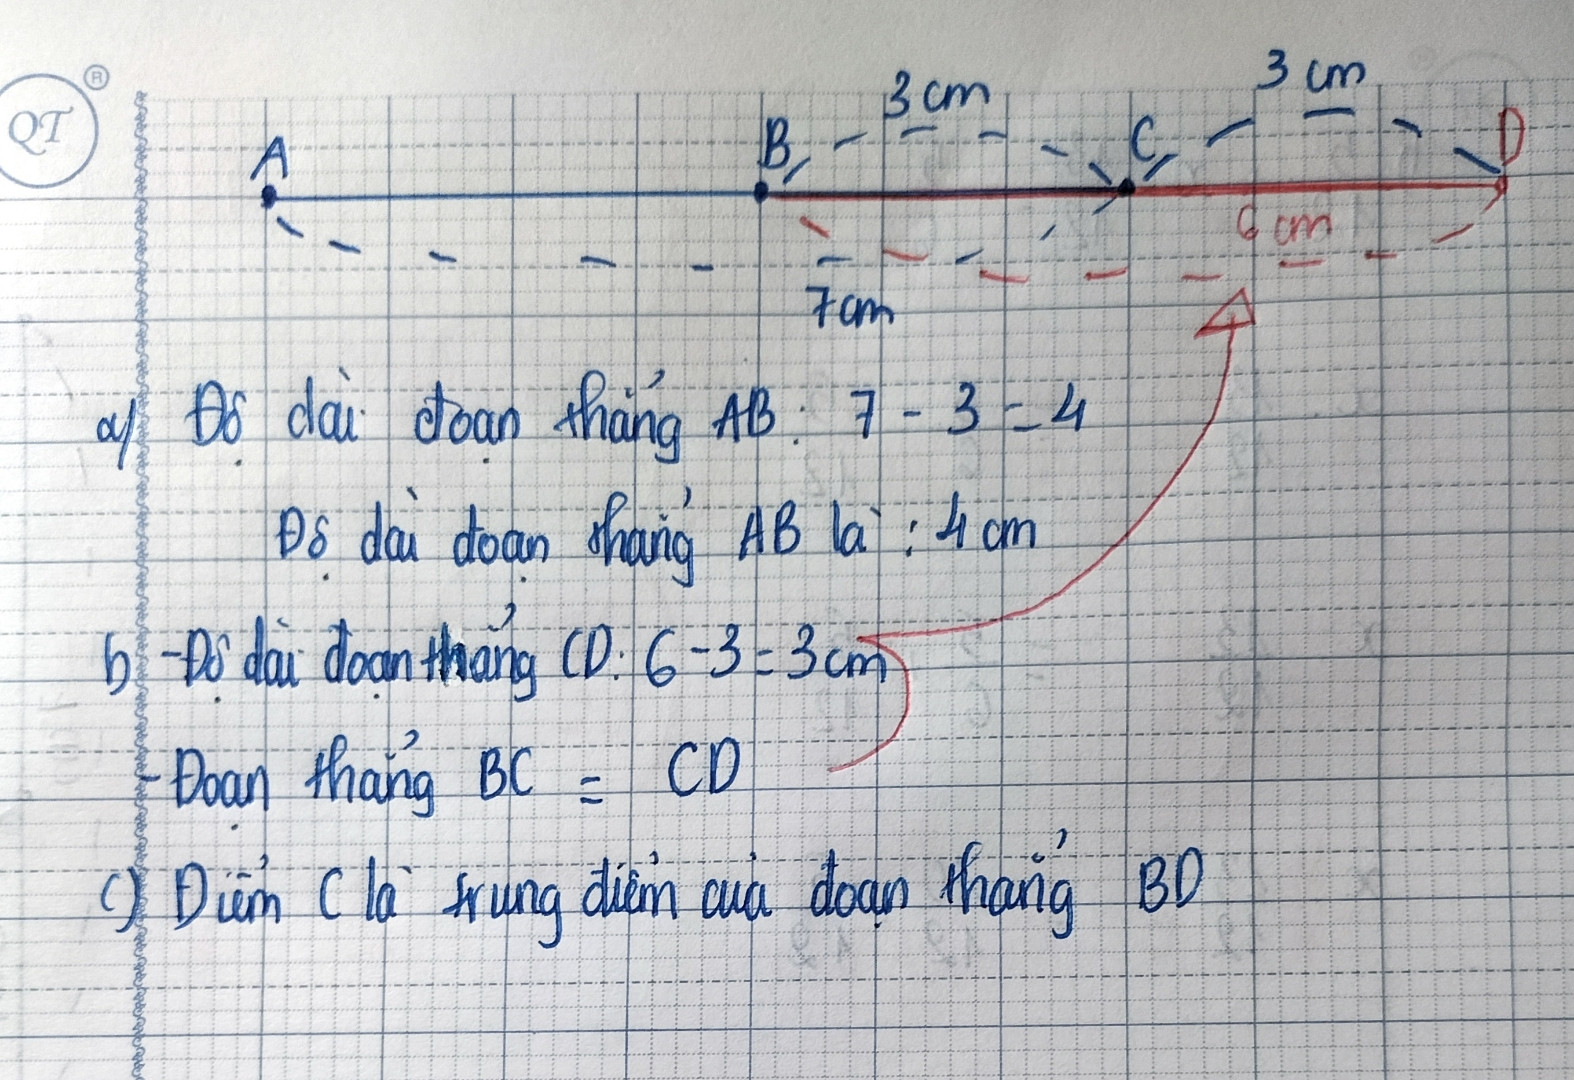 QT ®
3 cm 3 cm
A B C D
6 cm
7 cm
a/ Độ dài đoạn thẳng AB: 7 - 3 = 4
Độ dài đoạn thẳng AB là : 4 cm
b - Độ dài đoạn thẳng CD: 6 - 3 = 3 cm
- Đoạn thẳng BC = CD
c) Điểm C là trung điểm của đoạn thẳng BD